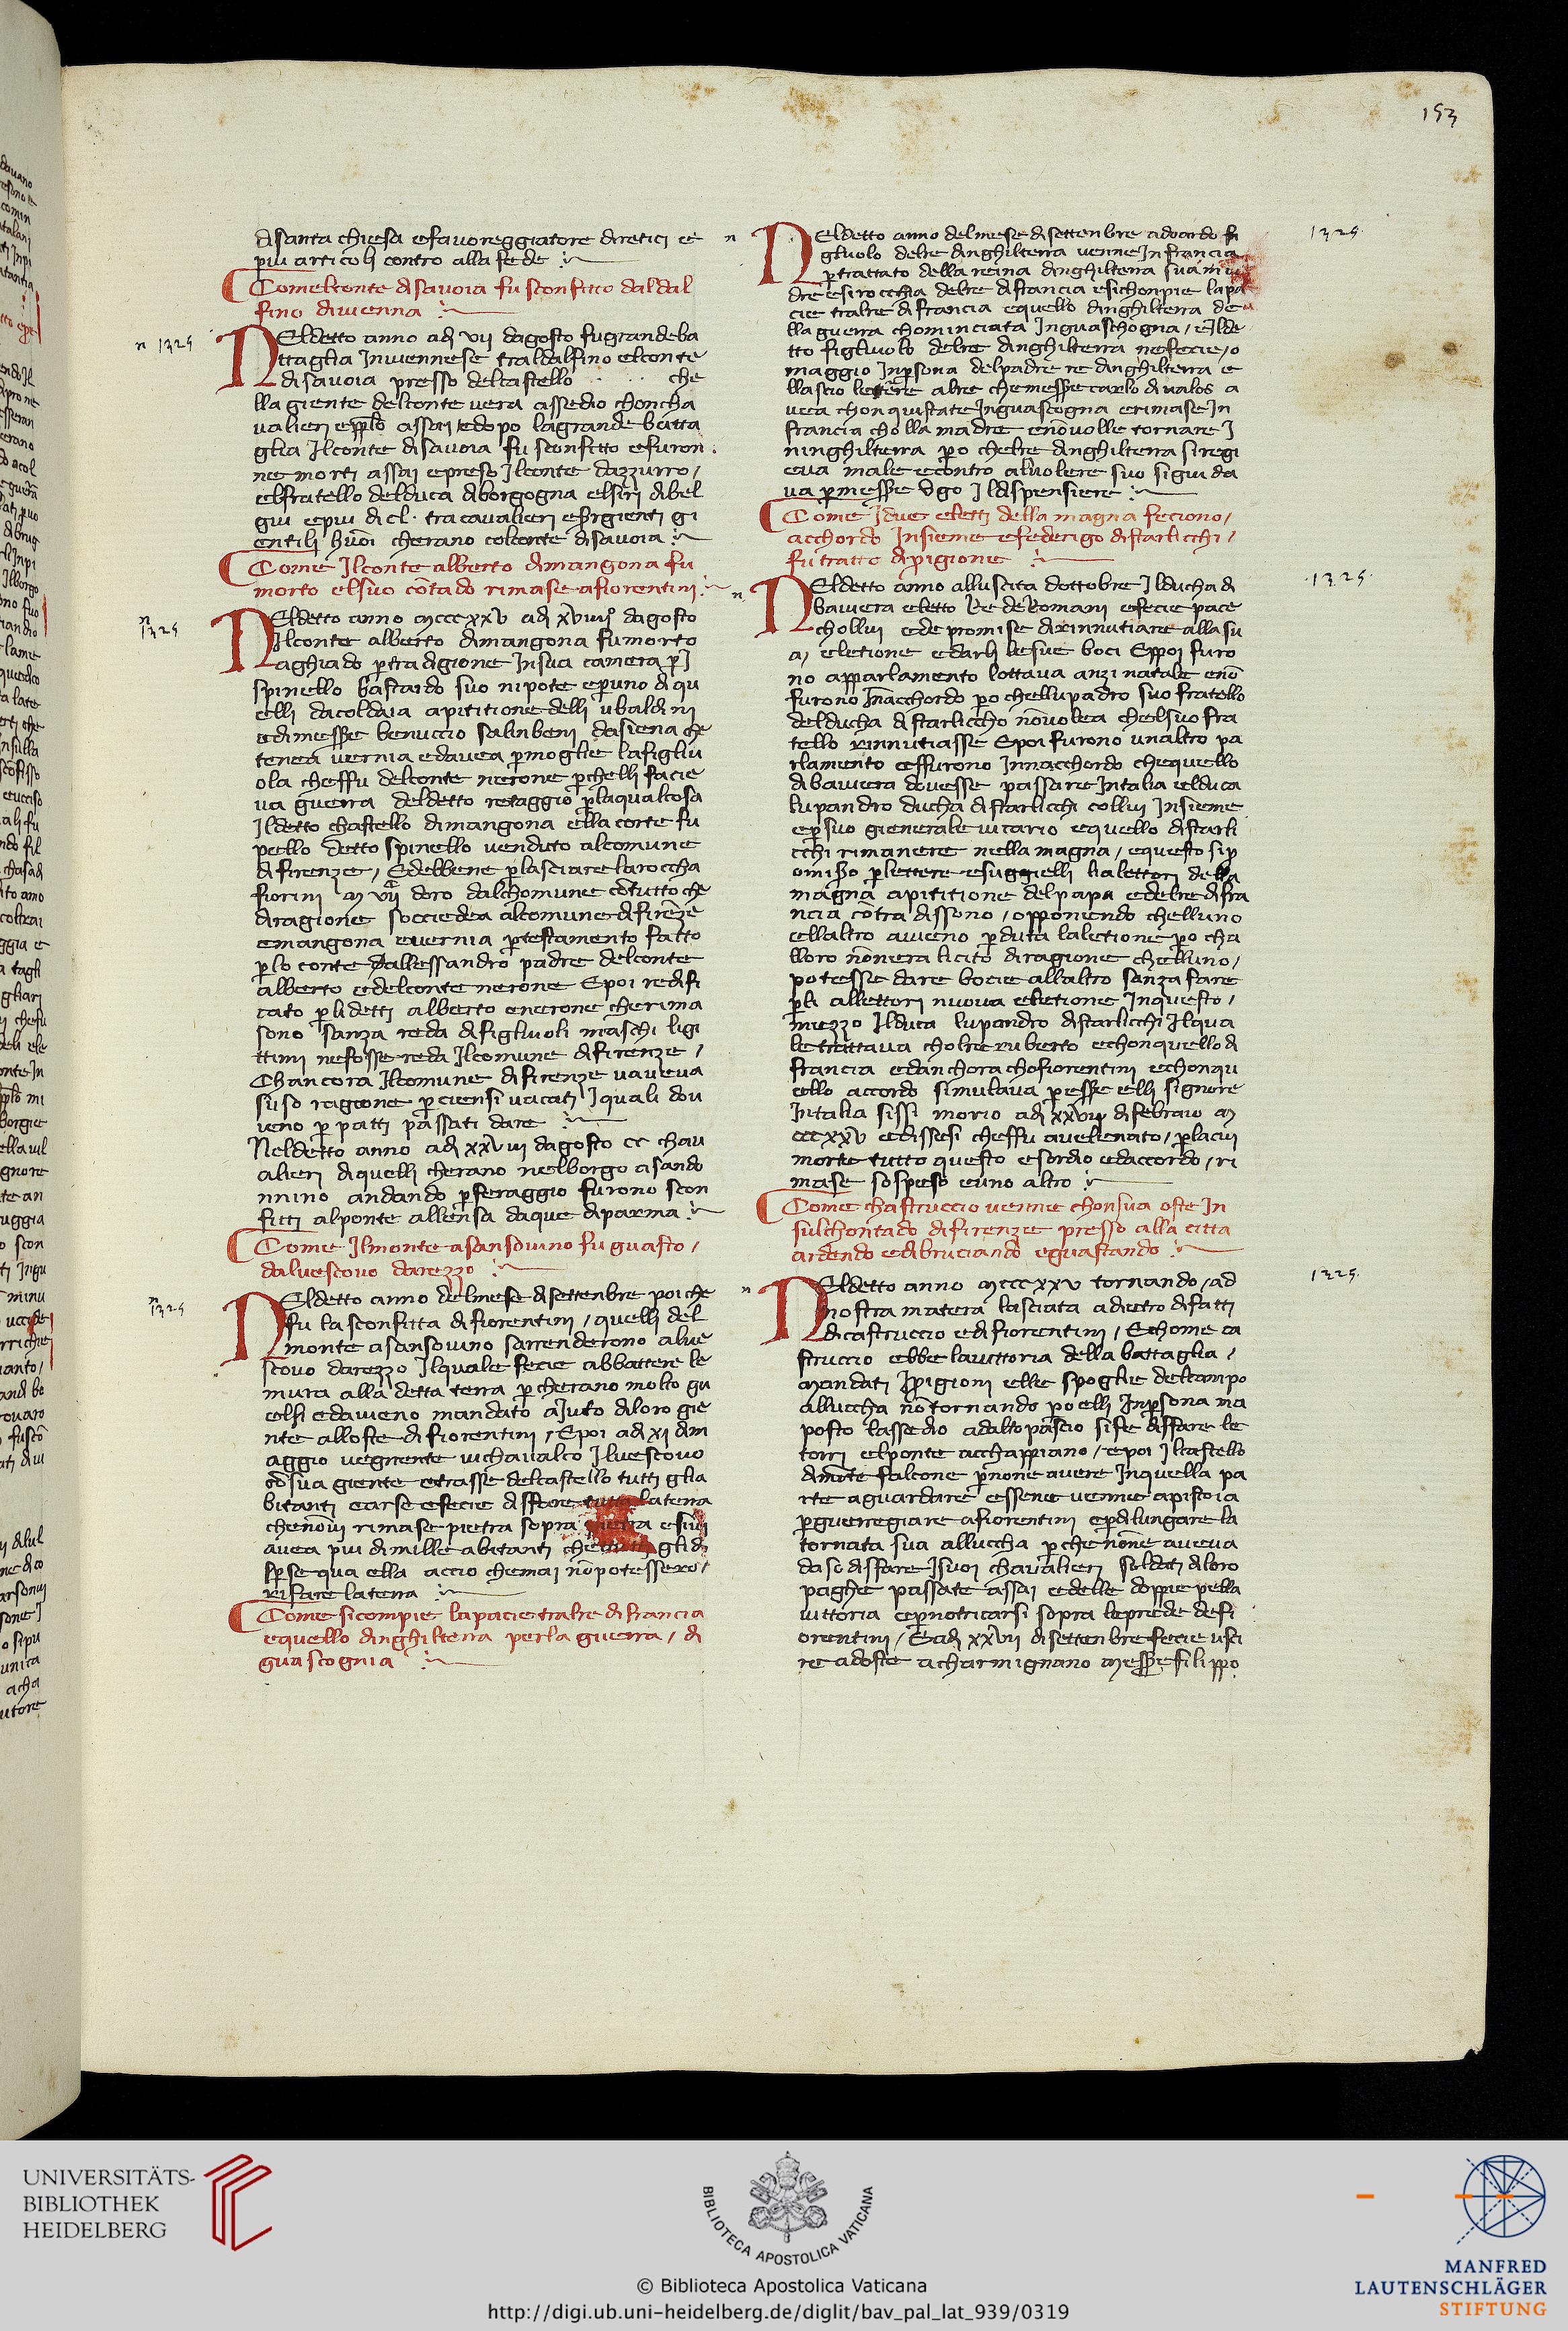 153
di santa chiesa e favoreggiatore diretici et
piu articoli contro alla fede
Comelconte disavoia fu sconfitto dal dal
fino diuienna
n 1325
Neldetto anno adj vij dagosto fugrandeba
ttaglia Inuiennese traldalfino elconte
disavoia presso delcastello che
lla giente delconte vera assedio choncha
valieri epplo assai edopo lagrande batta
glia Ilconte disavoia fu sconfitto efuron
ne morti assai epreso Ilconte dazzurro /
elfratello delduca diborgogna elsirj dibel
gui epiu di cl. tra cavalieri e gienti gi
entilj huoi cherano colconte disavoia
Come Ilconte alberto dimangona fu
morto elsuo cōtado rimase afiorentinj
n 1325
Neldetto anno mcccxxv adj xviiij dagosto
Ilconte alberto dimangona fumorto
aghiado ptradigione Insua camera p j
spinello bastardo suo nipote epuno di qu
elli dacoldaia apititione delli ubaldini
edimesse benuccio salinbeni dasiena che
tenea uernia edavea pmoglie lafigliu
ola cheffu delconte nerone pchelli facie
va guerra deldetto retaggio plaqualcosa
Ildetto chastello dimangona ella corte fu
pello detto spinello venduto alcomune
difirenze / Edebbene plasciarelaroccha
fiorini doro dalchomune cōtutto che
diragione soccedea alcomune difirēze
emangona euernia ptestamento fatto
plo conte dallessandro padre delconte
alberto edelconte nerone Epoi redifi
cato plidetti alberto enerone cherima
sono sanza reda difigliuoli maschi ligi
ttimi nefosse reda Ilcomune difirenze /
Chancora Ilcomune difirenze vaueva
suso ragione pciensi uacati Iquali dou
ueno p patti passati dare
Neldetto anno adj xxviii dagosto cc chau
alieri di quelli cherano nelborgo asando
nnino andando pferaggio furono scon
fitti alponte allensa daque diparma
Come Ilmonte asansouino fu guasto /
daluescouo darezzo
n 1325
Neldetto anno delmese disettenbre poi che
fu la sconfitta difiorentini / quelli del
monte asansouino sarrenderono alue
scouo darezzo Ilquale fecie abbattere le
mura alla detta terra pcherano molto gu
elfi edaueno mandato aiuto diloro gie
nte alloste difiorentini / Epoi adj xi dim
aggio vegnente vichaualco Iluescouo
cōsua giente etrasse delcastello tutti glia
bitanti earse efecie disfare tutta laterra
chenōui rimase pietra sopra pietra esiui
auea piu dimille abitanti glidi
spse qua ella accio chemai nōpotessero /
rifare laterra
Come sicompie lapacie tralre difrancia
equello dinghilterra perla guerra / di
guascognia
n 1325
Neldetto anno delmese disettenbre adoardo fi
gliuolo delre dinghilterra venne Infrancia
ptrattato della reina dinghilterra sua ma
dre esirocchia delre difrancia esichonpie lapa
cie tralre difrancia equello dinghilterra de
lla guerra chominciata Inguaschogna / eIlde
tto figliuolo delre dinghilterra nefecie / o
maggio Inpsona delpadre re dinghilterra e
llascio letere alre chemesse carlo di valos a
vea chonquistate Inguascogna erimase In
francia cholla madre enōvolle tornare I
ninghilterra po chelre dinghilterra siregi
eua male econtro aluolere suo siguida
ua pmesse Ugo Ildispensiere
Come Idue eletti della magna feciono /
acchordo Insieme efederigo distarlicchi /
fu tratto dipigione
n 1325
Neldetto anno alluscita dottobre Ilducha di
baviera eletto Re deRomani efecie pace
chollui ede promise dirinnutiare alla su
a / eletione edarli lesue boci Eppoi furo
no apparlamento lottava anzi natale enō
furono Inacchordo po chellupadro suo fratello
delducha distarliccho nōuolea chelsuo fra
tello rinnutiasse Epoi furono unaltro pa
rlamento effurono Innacchordo chequello
dibaviera dovesse passare Intalia elduca
lupandro ducha distarlicchi collui Insieme
epsuo gienerale vicario equello distarli
cchi rimanere nella magna / equesto sip
omisso plettere esuggielli lialettori della
magna apititione delpapa edelre difra
ncia cōtradissono / opponendo chelluno
ellaltro aueno pduta laletione po cha
lloro nōnera licito diragione chelluno /
potesse dare bocie allaltro sanza fare
pli allettori nuova eletione Inquesto /
mezzo Ilduca lupandro distarlicchi Ilqua
le trattava cholre ruberto echonquello di
francia edanchora chofiorentini echonqu
ello accordo simulava pesse elli signore
Intalia sissi morio adj xxviij difebraio m
cccxxv edissesi cheffu avelenato / placui
morte tutto questo esordio edaccordo / ri
mase sospeso euno altro
Come chastruccio venne chonsua oste In
sulchontado difirenze presso alla citta
ardendo edibruciando eguastando
n 1325
Neldetto anno mcccxxv tornando / ad
nostra matera lasciata adietro difatti
dicastruccio edifiorentini / Echome ca
struccio ebbe lauittoria della battaglia /
mandati Ipigioni elle spoglie delcanpo
alluccha nōtornando po elli Inpsona ma
posto lassedio adaltopascio sife disfare le
torri elponte acchappiano / epoi Ilcastello
dimōte falcone pnone avere Inquella pa
rte aguardare essene venne apistoia
pguerregiare afiorentini epdilungare la
tornata sua alluccha pchenōne aveva
daso disfare Isuoi chavalieri soldati diloro
paghe passate assai edelle doppie pella
vittoria epnotricarsi sopra leprede defi
orentini / Eadj xxvii disettenbre fecie usci
re adoste acharmignano messefilippo
UNIVERSITÄTS-
BIBLIOTHEK
HEIDELBERG
BIBLIOTECA APOSTOLICA VATICANA
© Biblioteca Apostolica Vaticana
http://digi.ub.uni-heidelberg.de/diglit/bav_pal_lat_939/0319
MANFRED
LAUTENSCHLÄGER
STIFTUNG